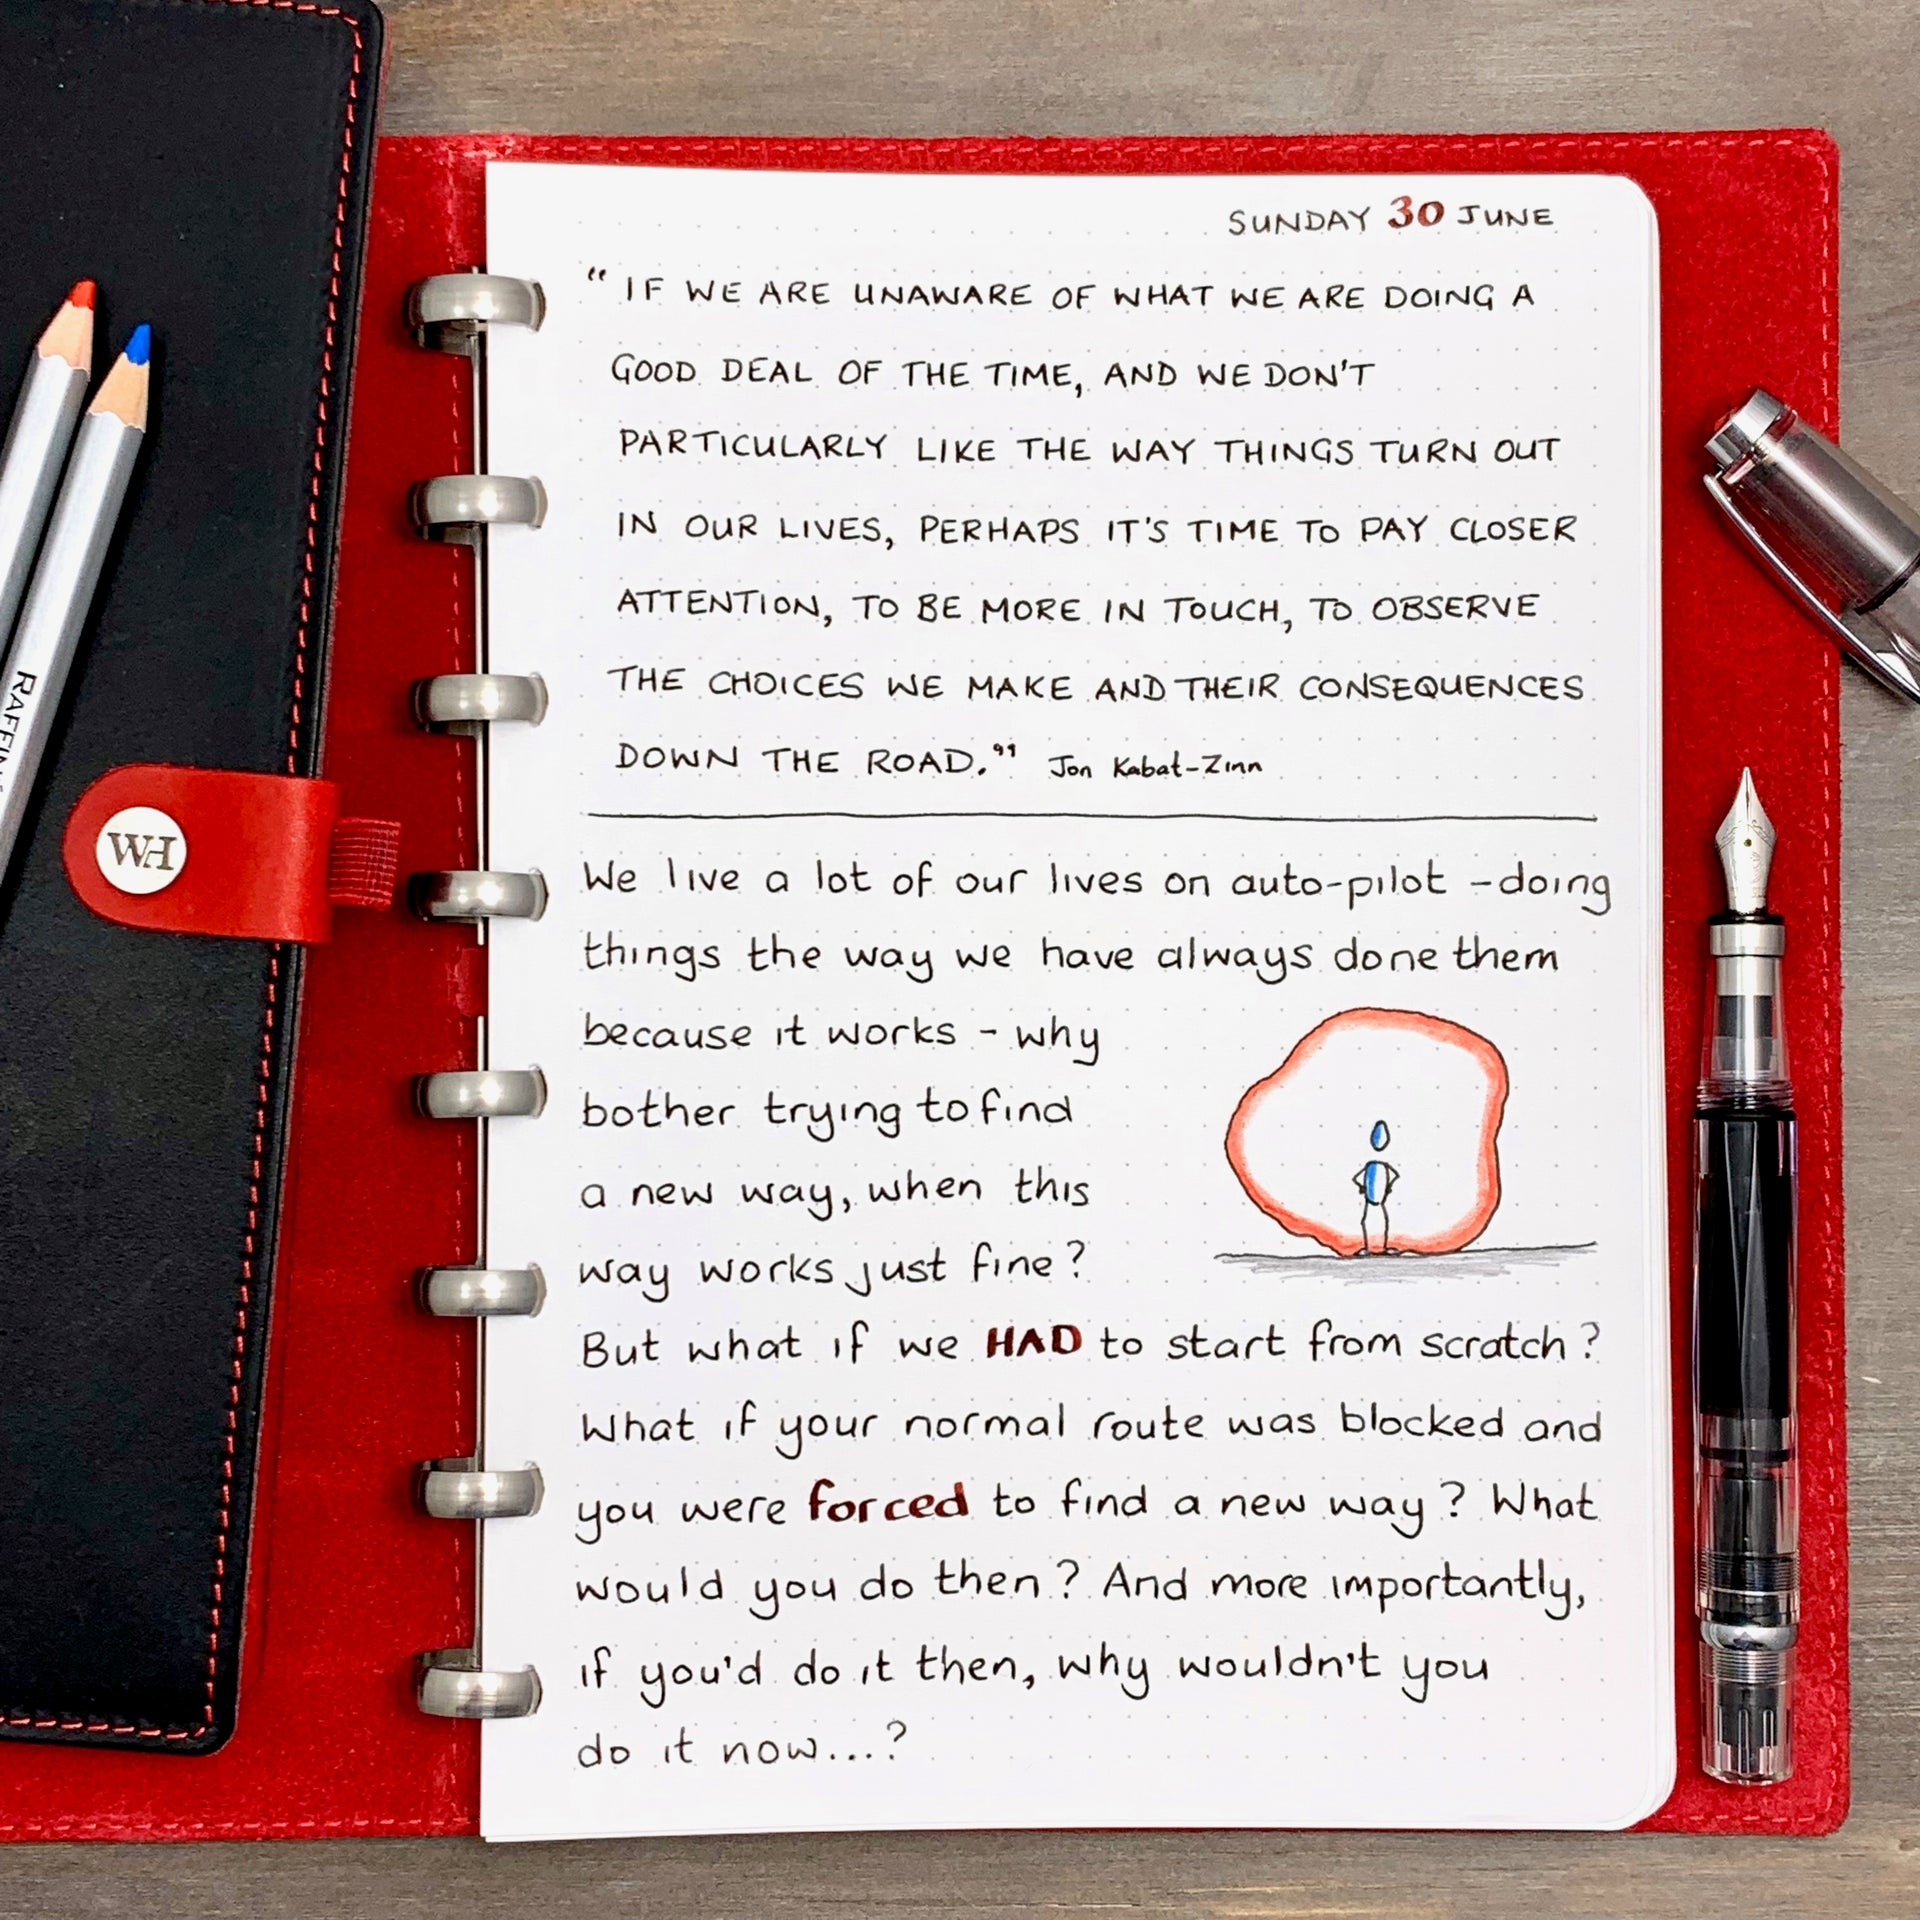 SUNDAY 30 JUNE
“ IF WE ARE UNAWARE OF WHAT WE ARE DOING A
GOOD DEAL OF THE TIME, AND WE DON'T
PARTICULARLY LIKE THE WAY THINGS TURN OUT
IN OUR LIVES, PERHAPS IT'S TIME TO PAY CLOSER
ATTENTION, TO BE MORE IN TOUCH, TO OBSERVE
THE CHOICES WE MAKE AND THEIR CONSEQUENCES
DOWN THE ROAD.” Jon Kabat-Zinn
We live a lot of our lives on auto-pilot - doing
things the way we have always done them
because it works - why
bother trying to find
a new way, when this
way works just fine?
But what if we HAD to start from scratch?
What if your normal route was blocked and
you were forced to find a new way? What
would you do then? And more importantly,
if you'd do it then, why wouldn't you
do it now...?
WH